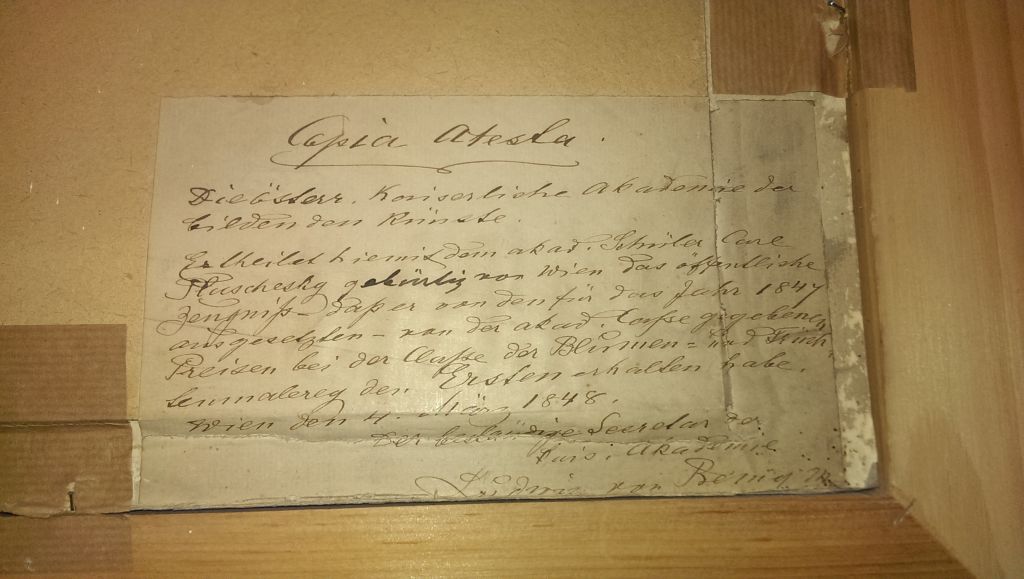 Copia Atesta.
Die österr. Kaiserliche Akademie der
bildenden Künste.
Ertheilet hiemit dem akad. Schüler Carl
gebürtig von Wien das öffentliche
Zeugniß – daß er von den für das Jahr 1847
ausgesetzten – von der akad. Caße gegebenen
Preisen bei der Claße der Blumen = und Früch
tenmalerey den Ersten erhalten habe.
Wien den 4. März 1848.
Der beständige Secretär der
kais. Akademie
Ludwig von